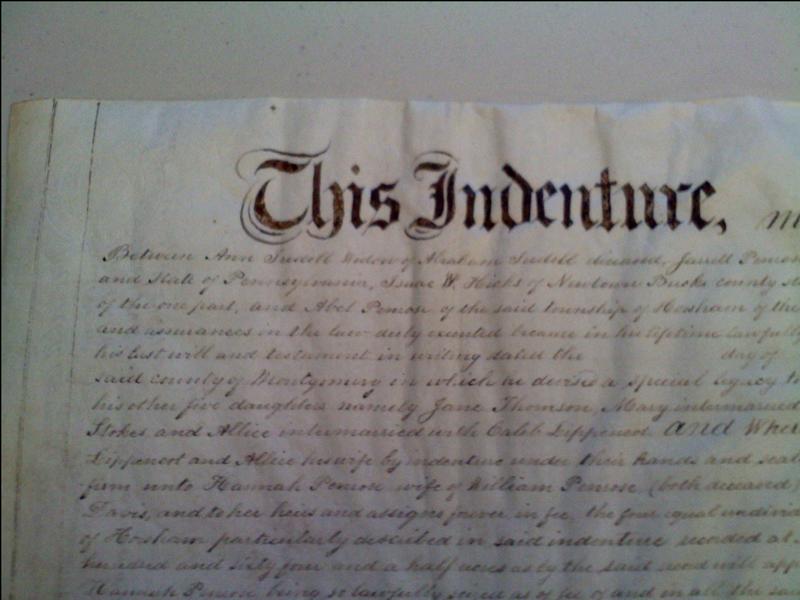 This Indenture, m
Between Ann Widow of Abraham deceased, Jarrett Penrose
and State of Pennsylvania, Isaac W. Hicks of Newtown Bucks county st
of the one part, and Abel Penrose of the said township of Horsham of the
and assurances in the law duly executed became in his lifetime lawfully
his last will and testament in writing dated the day of
said county of Montgomery in which he devised a special legacy to
his other five daughters namely Jane Thomson, Mary intermarried
Stokes and Allice intermarried with Caleb Lippencot. And Wher
Lippencot and Allice his wife by indenture under their hands and seal
firm unto Hannah Penrose wife of William Penrose (both deceased)
Davis, and to her heirs and assigns forever in fee, the four equal undivid
of Horsham particularly described in said indenture recorded at
hundred and sixty four and a half acres as by the said will app
Hannah Penrose being so lawfully seized as of fee of and in all the said